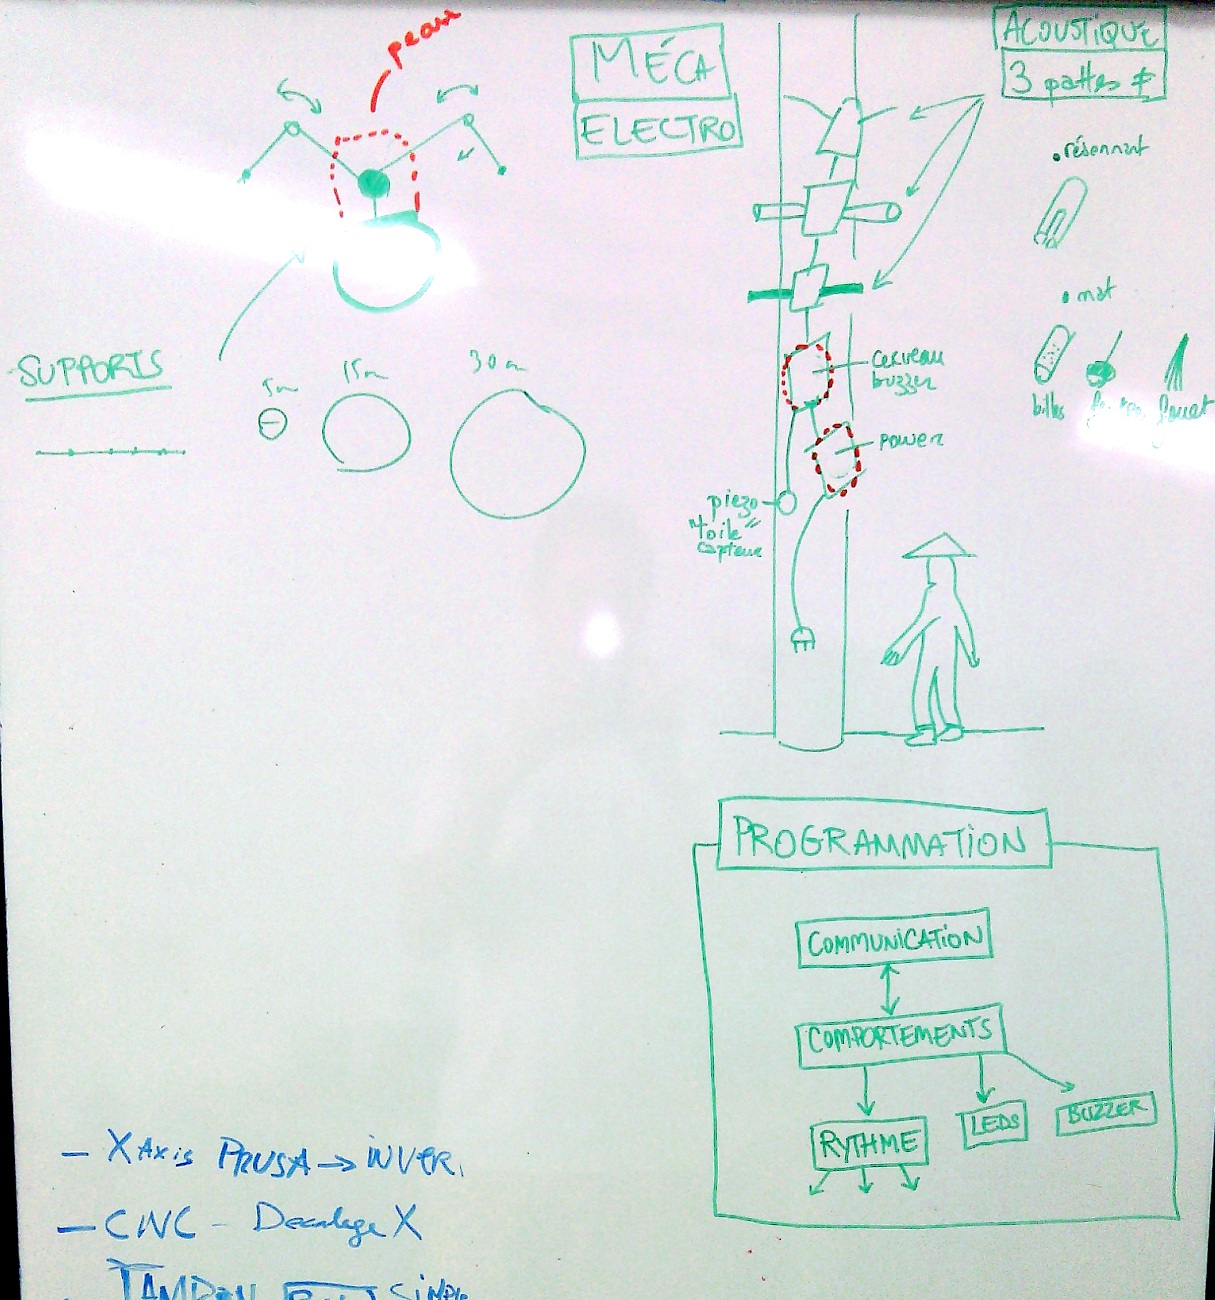 peau
MÉCA
ELECTRO
ACOUSTIQUE
3 pattes ≠
• résonnant
• mat
billes
fouet
SUPPORTS
5m
15m
30m
cerveau
buzzer
power
piezo
"toile"
capteur
PROGRAMMATION
COMMUNICATION
COMPORTEMENTS
RYTHME
LEDS
BUZZER
— X Axis PRUSA → INVER.
— CNC - Decalage X